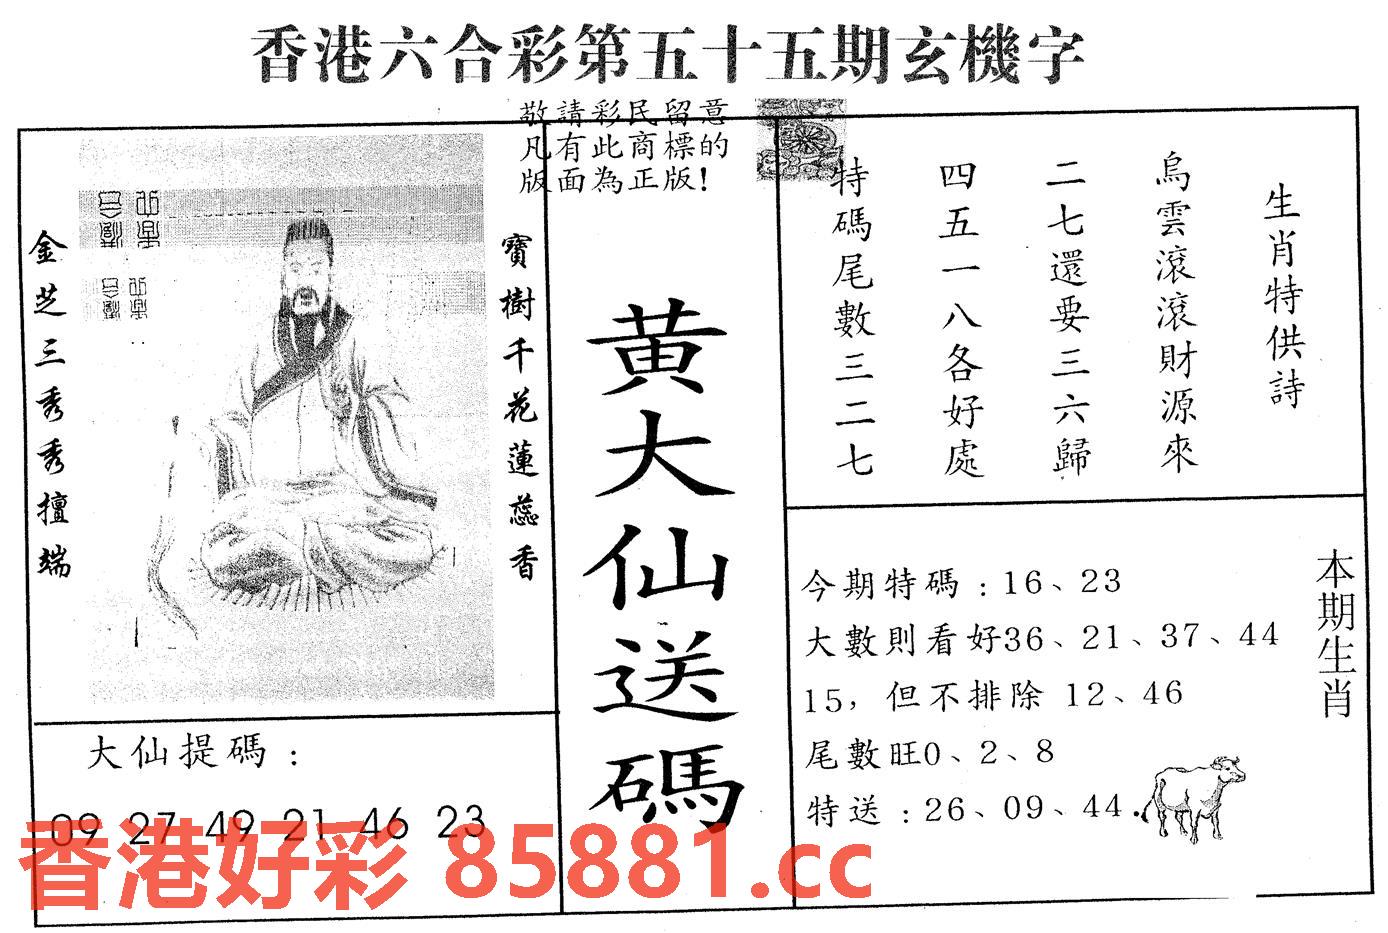 香港六合彩第五十五期玄機字
敬請彩民留意
凡有此商標的
版面為正版!
生肖特供詩
烏雲滾滾財源來
二七還要三六歸
四五一八各好處
特碼尾數三二七
寶樹千花蓮蕊香
金芝三秀秀擅端
黄大仙送碼
大仙提碼:
09 27 49 21 46 23
本期生肖
今期特碼:16、23
大數則看好36、21、37、44
15,但不排除 12、46
尾數旺0、2、8
特送:26、09、44.
香港好彩 85881.cc